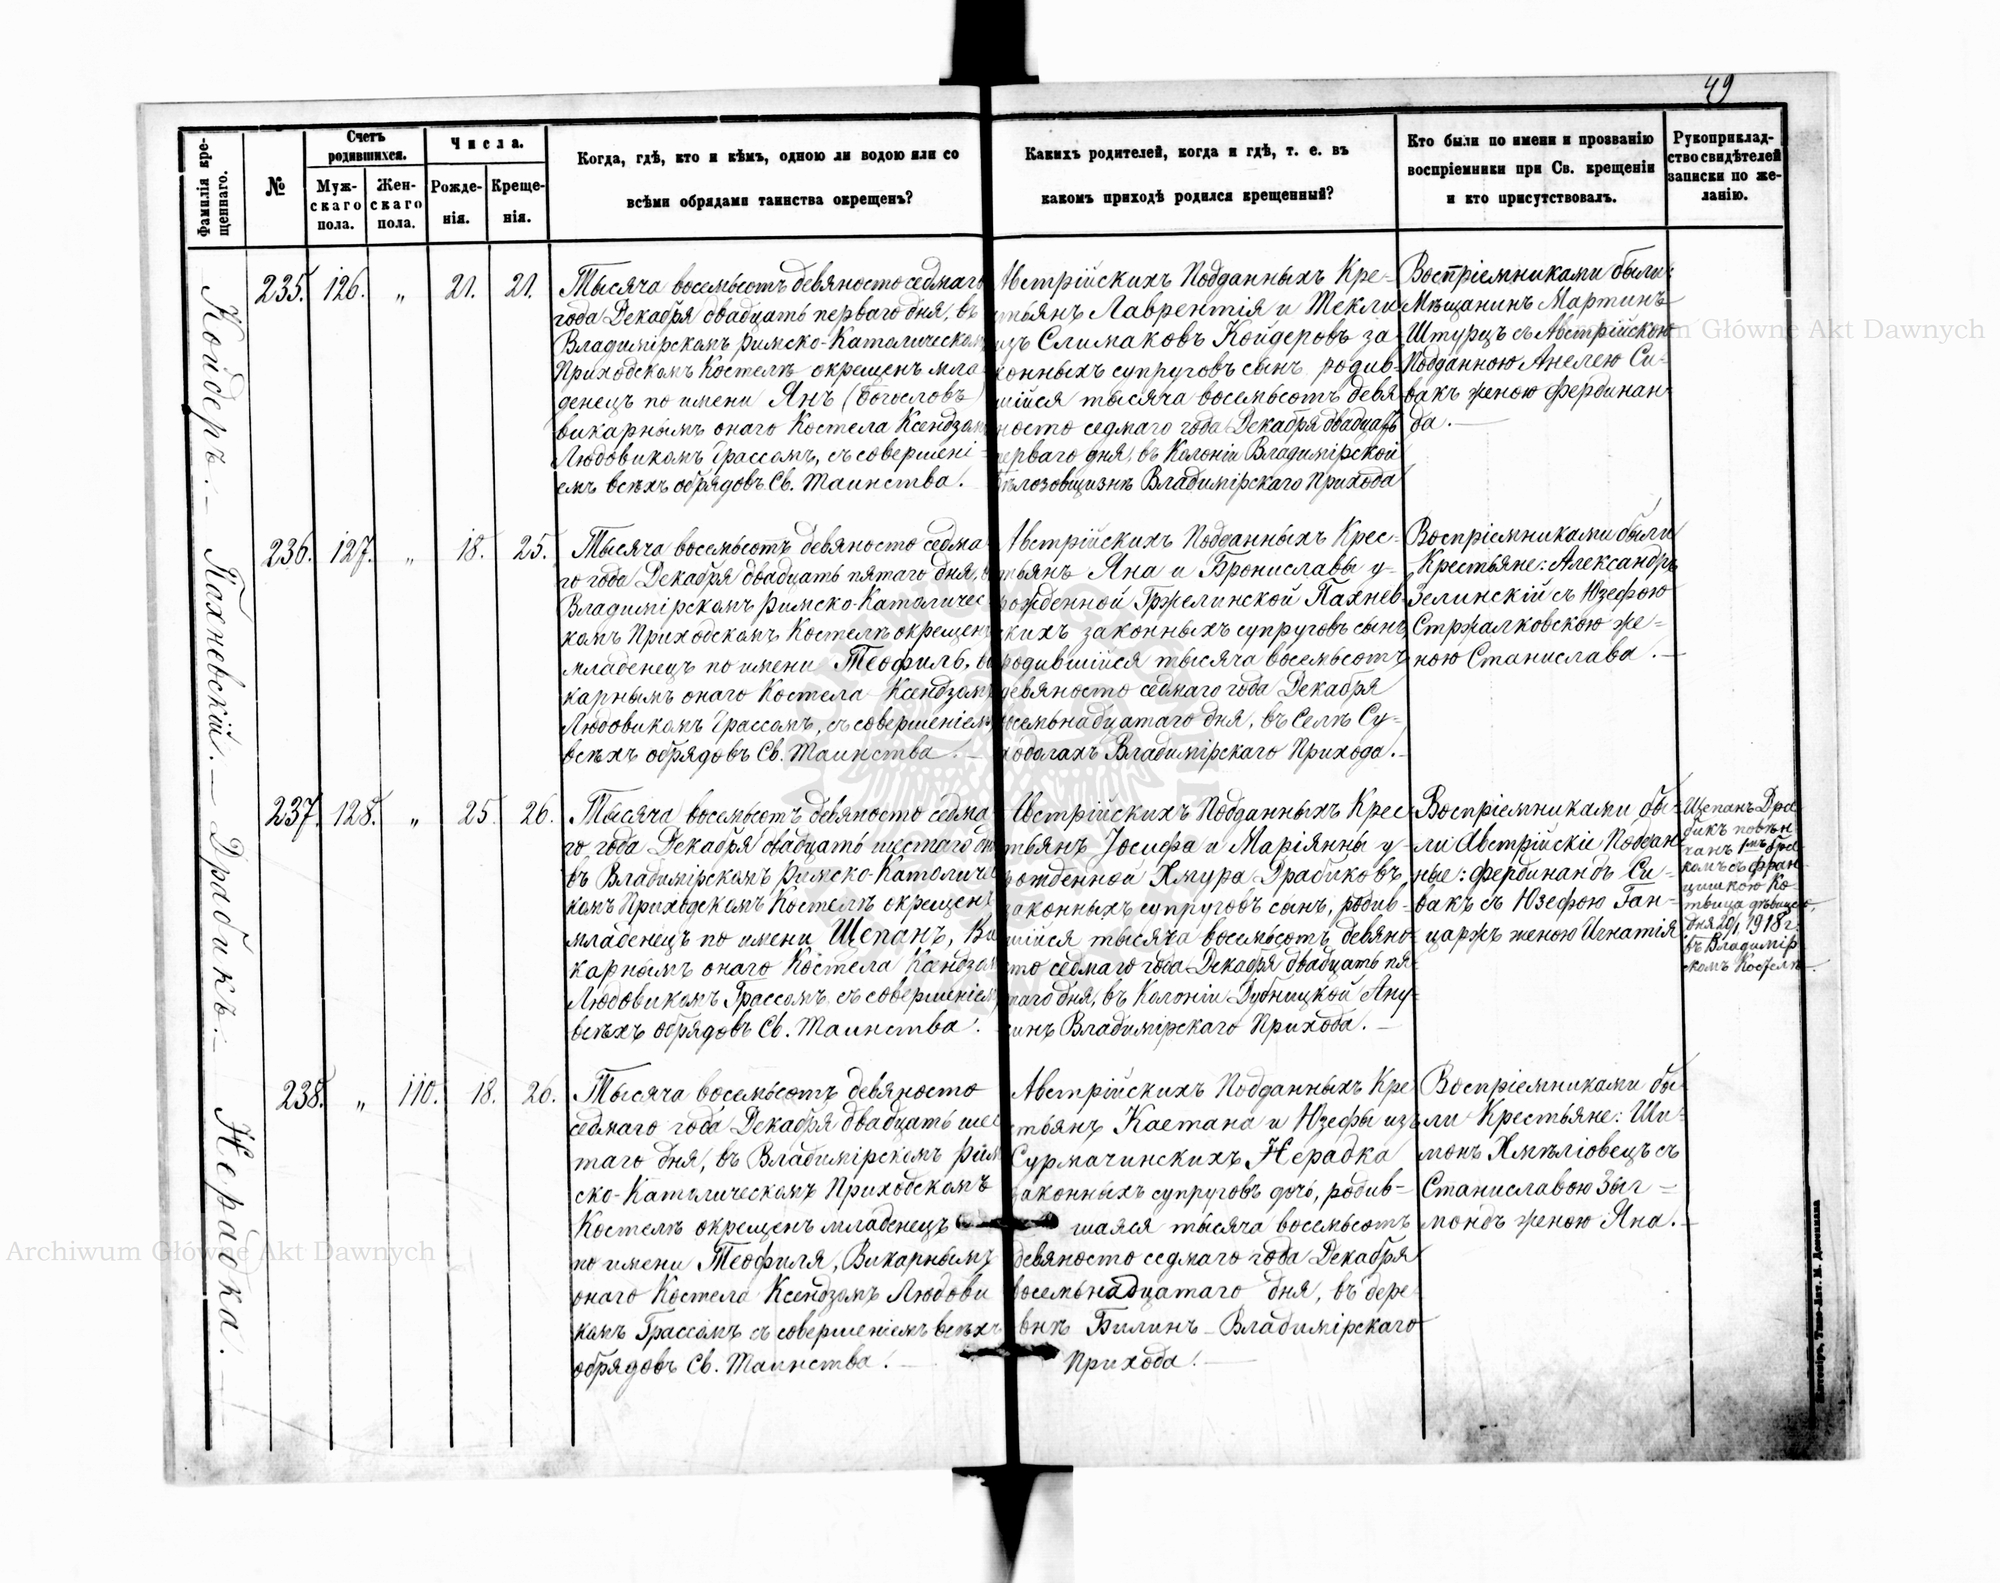 49
Фамилія кре-
щеннаго.
№
Счетъ
родившихся.
Муж-
скаго
пола.
Жен-
скаго
пола.
Числа.
Рожде-
нія.
Креще-
нія.
Когда, гдѣ, кто и кѣмъ, одною ли водою или со
всѣми обрядами таинства окрещенъ?
Какихъ родителей, когда и гдѣ, т. е. въ
какомъ приходѣ родился крещенный?
Кто были по имени и прозванію
воспріемники при Св. крещеніи
и кто присутствовалъ.
Рукоприклад-
ство свидѣтелей
записки по же-
ланію.
Койдеръ.
235. 126. „ 21. 21.
Тысяча восемьсотъ девяносто седмаго
года Декабря двадцать перваго дня, въ
Владимірскомъ Римско-Католическомъ
Приходскомъ Костелѣ окрещенъ мла-
денецъ по имени Янъ (Богословъ)
викарнымъ онаго Костела Ксендзомъ
Людовикомъ Грассомъ, съ совершені-
емъ всѣхъ обрядовъ Св. Таинства.
Австрійскихъ Подданныхъ Кре-
стьянъ Лаврентія и Текли
изъ Слимаковъ Койдеровъ за-
конныхъ супруговъ сынъ, родив-
шійся тысяча восемьсотъ девя-
носто седмаго года Декабря двадцать
перваго дня, въ Колоніи Владимірской
Бѣлозовщизнѣ Владимірскаго Прихода
Воспріемниками были:
Мѣщанинъ Мартинъ
Штурцъ съ Австрійскою
Подданною Анелею Си-
вакъ женою Фердинан-
да.
Пахновскій.
236. 127. „ 18. 25.
Тысяча восемьсотъ девяносто седма-
го года Декабря двадцать пятаго дня, въ
Владимірскомъ Римско-Католичес-
комъ Приходскомъ Костелѣ окрещенъ
младенецъ по имени Теофиль, ви-
карнымъ онаго Костела Ксендзомъ
Людовикомъ Грассомъ, съ совершеніемъ
всѣхъ обрядовъ Св. Таинства.
Австрійскихъ Подданныхъ Крес-
тьянъ Яна и Брониславы у-
рожденной Гржелинской Пахнев-
скихъ законныхъ супруговъ сынъ,
родившійся тысяча восемьсотъ
девяносто седмаго года Декабря
восемьнадцатаго дня, въ Селѣ Су-
ходолахъ Владимірскаго Прихода.
Воспріемниками были
Крестьяне: Александръ
Зелинскій съ Юзефою
Стржалковскою же-
ною Станислава.
Драбикъ.
237. 128. „ 25. 26.
Тысяча восемьсотъ девяносто седма-
го года Декабря двадцать шестаго дня
въ Владимірскомъ Римско-Католичес-
комъ Приходскомъ Костелѣ окрещенъ
младенецъ по имени Щепанъ, Ви-
карнымъ онаго Костела Ксендзомъ
Людовикомъ Грассомъ съ совершеніемъ
всѣхъ обрядовъ Св. Таинства.
Австрійскихъ Подданныхъ Крес-
тьянъ Іосифа и Маріянны у-
рожденной Хмура Драбиковъ
законныхъ супруговъ сынъ, родив-
шійся тысяча восемьсотъ девяно-
сто седмаго года Декабря двадцать пя-
таго дня, въ Колоніи Дубницкой Ану-
синъ Владимірскаго Прихода.
Воспріемниками бы-
ли Австрійскіе Поддан-
ные: Фердинандъ Си-
вакъ съ Юзефою Ган-
царжъ женою Игнатія
Щепанъ Дра-
бикъ повѣн-
чанъ 1мъ бра-
комъ съ Фран-
цишкою Ко-
дня 29/1 1918 г.
въ Владимір-
скомъ Костелѣ
Нерадка.
238. „ 110. 18. 26.
Тысяча восемьсотъ девяносто
седмаго года Декабря двадцать шес-
таго дня, въ Владимірскомъ Рим-
ско-Католическомъ Приходскомъ
Костелѣ окрещенъ младенецъ
по имени Теофиля, Викарнымъ
онаго Костела Ксендзомъ Людови-
комъ Грассомъ съ совершеніемъ всѣхъ
обрядовъ Св. Таинства.
Австрійскихъ Подданныхъ Кре-
стьянъ Каетана и Юзефы изъ
Сурмачинскихъ Нерадка
законныхъ супруговъ дочь, родив-
шаяся тысяча восемьсотъ
девяносто седмаго года Декабря
восемьнадцатаго дня, въ дере-
внѣ Билинъ Владимірскаго
Прихода.
Воспріемниками бы-
ли Крестьяне: Ши-
монъ Хмѣліовецъ съ
Станиславою Зыг-
мондъ женою Яна.
Archiwum Główne Akt Dawnych
Archiwum Główne Akt Dawnych